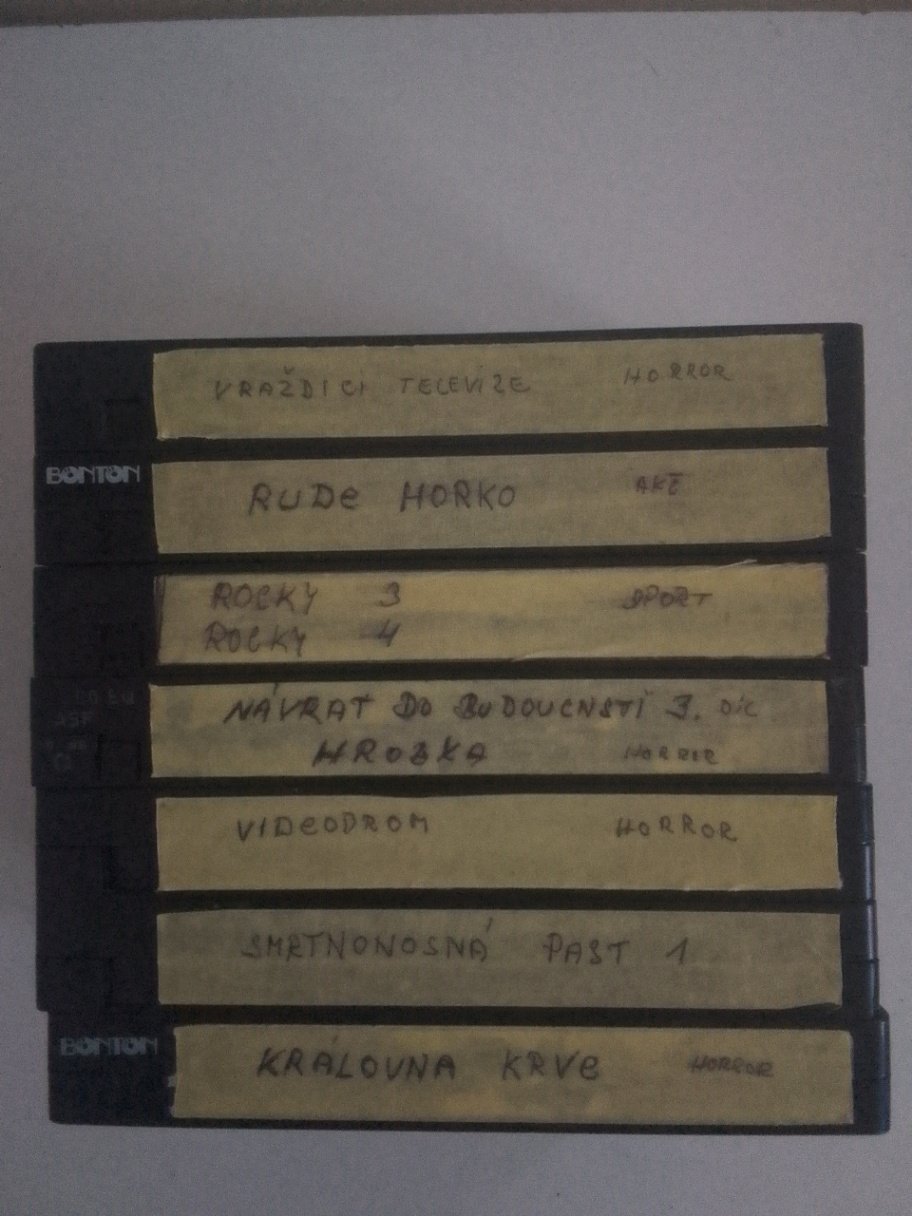 VRAŽDICI TELEVIZE HORROR
BONTON
RUDE HORKO AKČ
ROCKY 3 SPORT
ROCKY 4
NÁVRAT DO BUDOUCNSTÍ 3. DÍL
HROBKA HORROR
VIDEODROM HORROR
SMRTNONOSNÁ PAST 1
BONTON
KRÁLOVNA KRVE HORROR